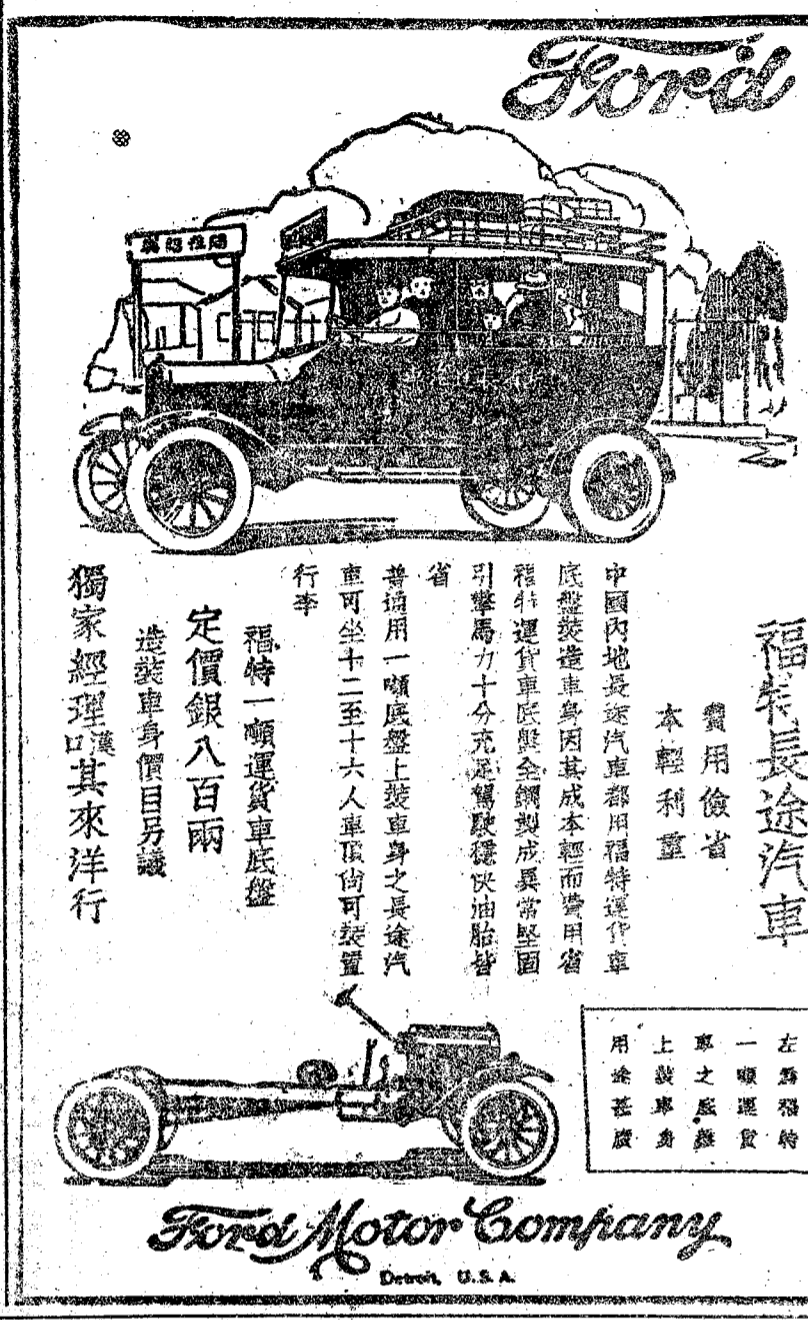 Ford
福特長途汽車
費用儉省
本輕利重
中國內地長途汽車都用福特運貨車
底盤裝造車身因其成本輕而費用省
福特運貨車底盤全鋼製成異常堅固
引擎馬力十分充足駕駛穩快油胎皆
省
普通用一噸底盤上裝車身之長途汽
車可坐十二至十六人車頂尙可裝置
行李
福特一噸運貨車底盤
定價銀八百兩
造裝車身價目另議
獨家經理漢口其來洋行
左為福特
一噸運貨
車之底盤
上裝車身
用途甚廣
Ford Motor Company
Detroit, U.S.A.